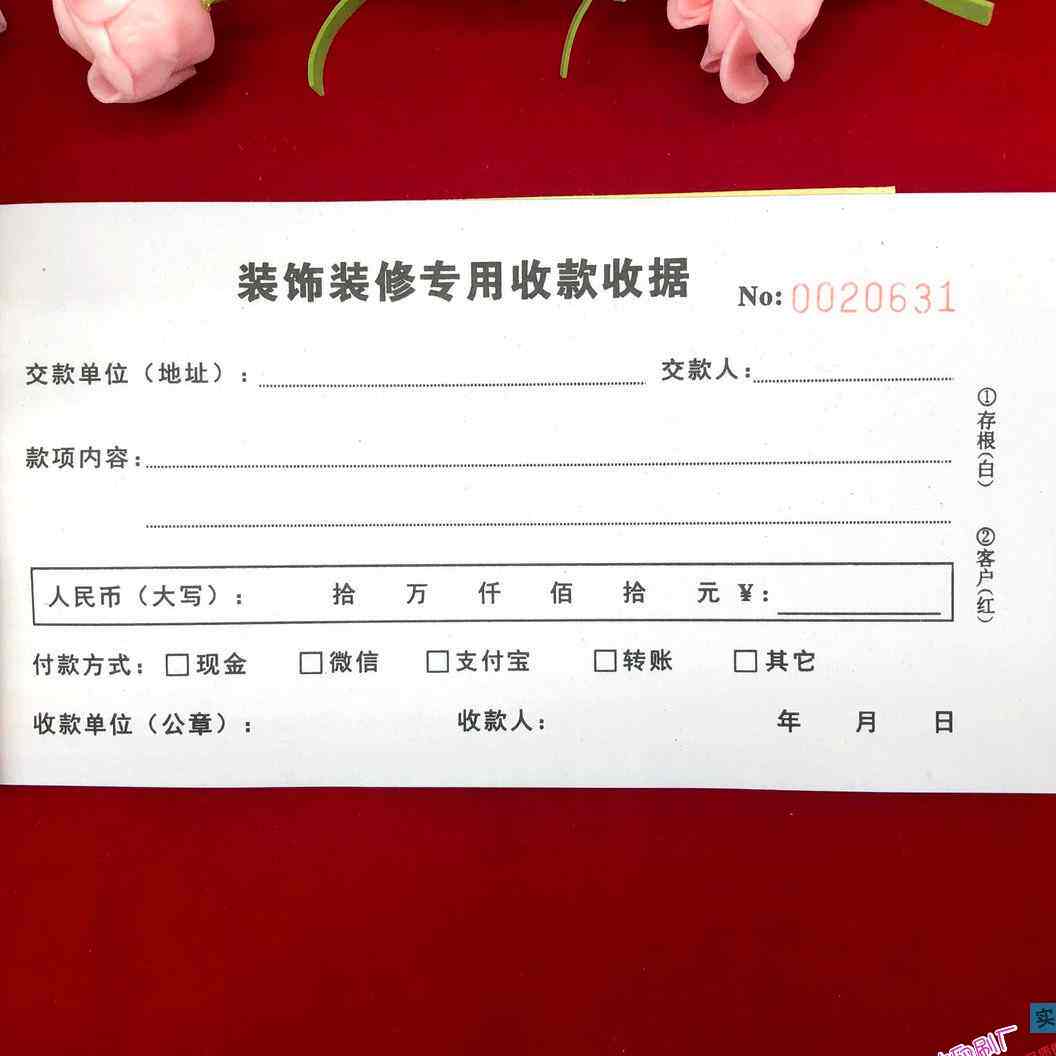 装饰装修专用收款收据 No: 0020631
交款单位（地址）： 交款人：
款项内容：
人民币（大写）： 拾 万 仟 佰 拾 元 ¥：
付款方式： □现金 □微信 □支付宝 □转账 □其它
收款单位（公章）： 收款人： 年 月 日
①存根（白）
②客户（红）
实
刷厂